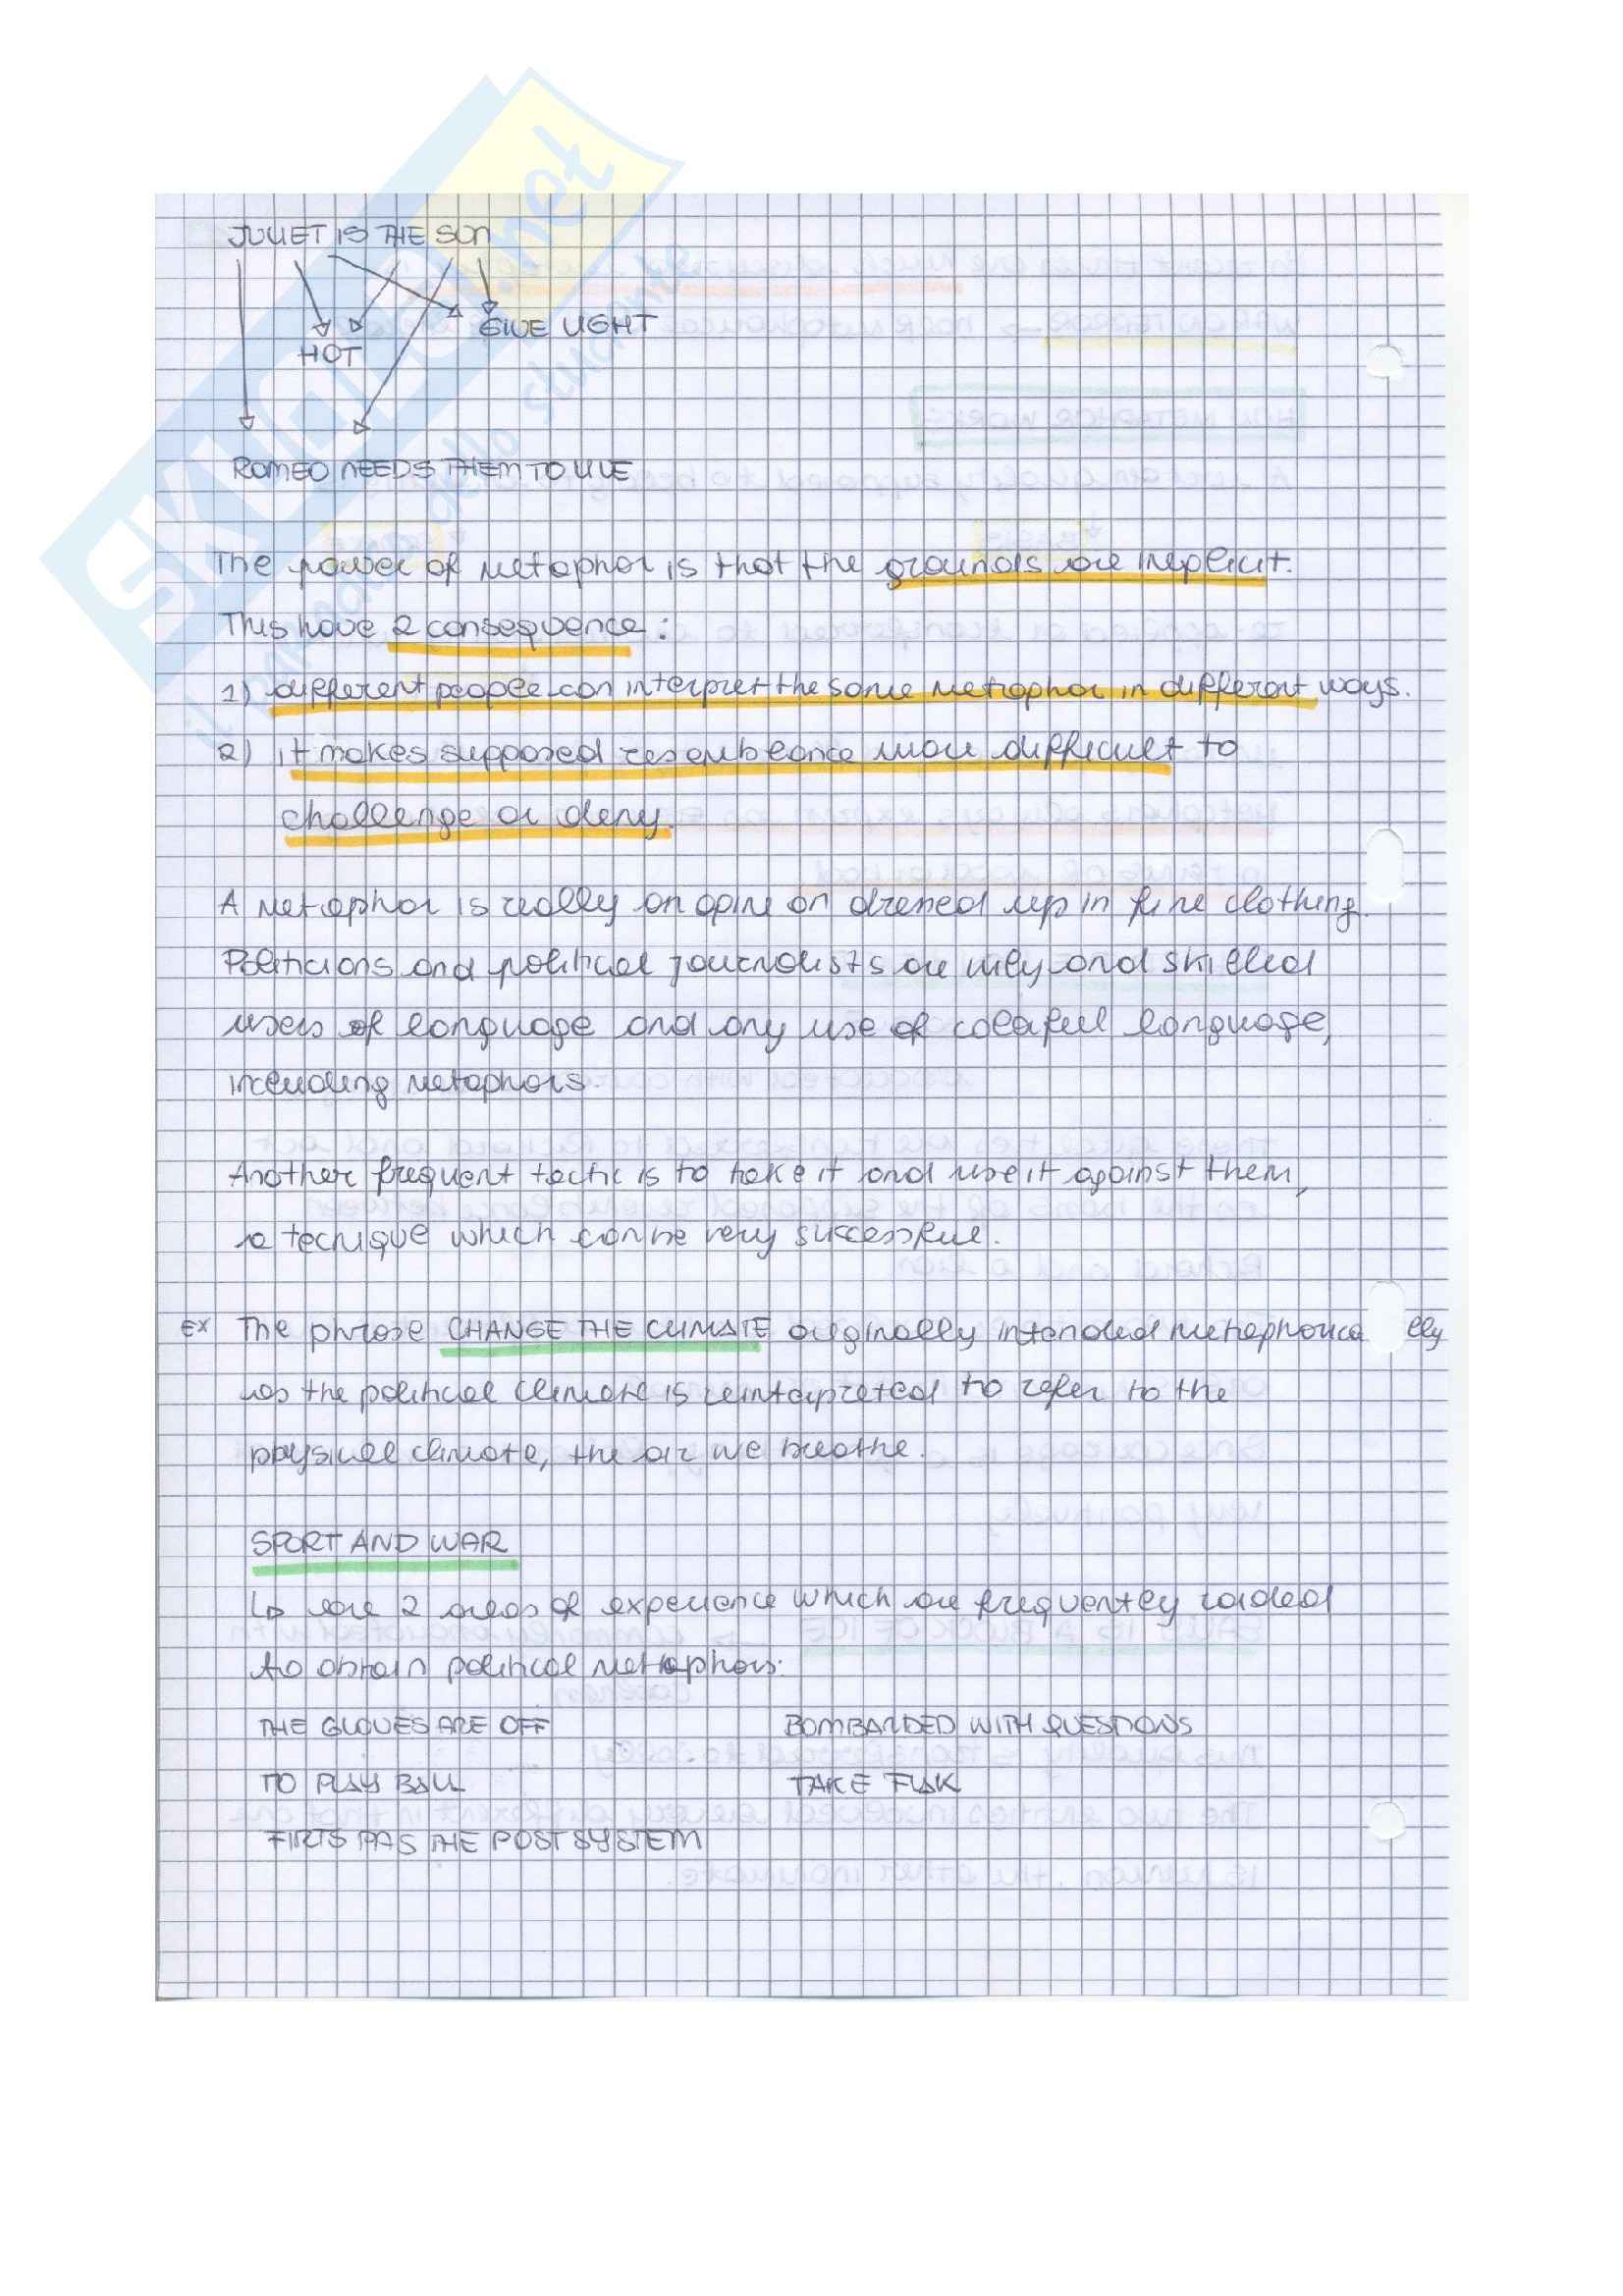 JULIET IS THE SUN
GIVE LIGHT
HOT
ROMEO NEEDS THEM TO LIVE
The power of metaphor is that the grounds are implicit.
This have 2 consequence:
1) different people can interpret the same metaphor in different ways.
2) it makes supposed resemblance more difficult to
challenge or deny.
A metaphor is really an opinion dressed up in fine clothing.
Politicians and political journalists are wily and skilled
users of language and any use of colorful language,
including metaphors.
Another frequent tactic is to take it and use it against them,
a tecnique which can be very successful.
EX The phrase CHANGE THE CLIMATE originally intended metaphorically
as the political climate is reinterpreted to refer to the
physical climate, the air we breathe.
SPORT AND WAR
↳ are 2 areas of experience which are frequently raided
to obtain political metaphors.
THE GLOVES ARE OFF BOMBARDED WITH QUESTIONS
TO PLAY BALL TAKE FLAK
FIRTS PAS THE POST SYSTEM
SKUOLA.net
il paradiso dello studente